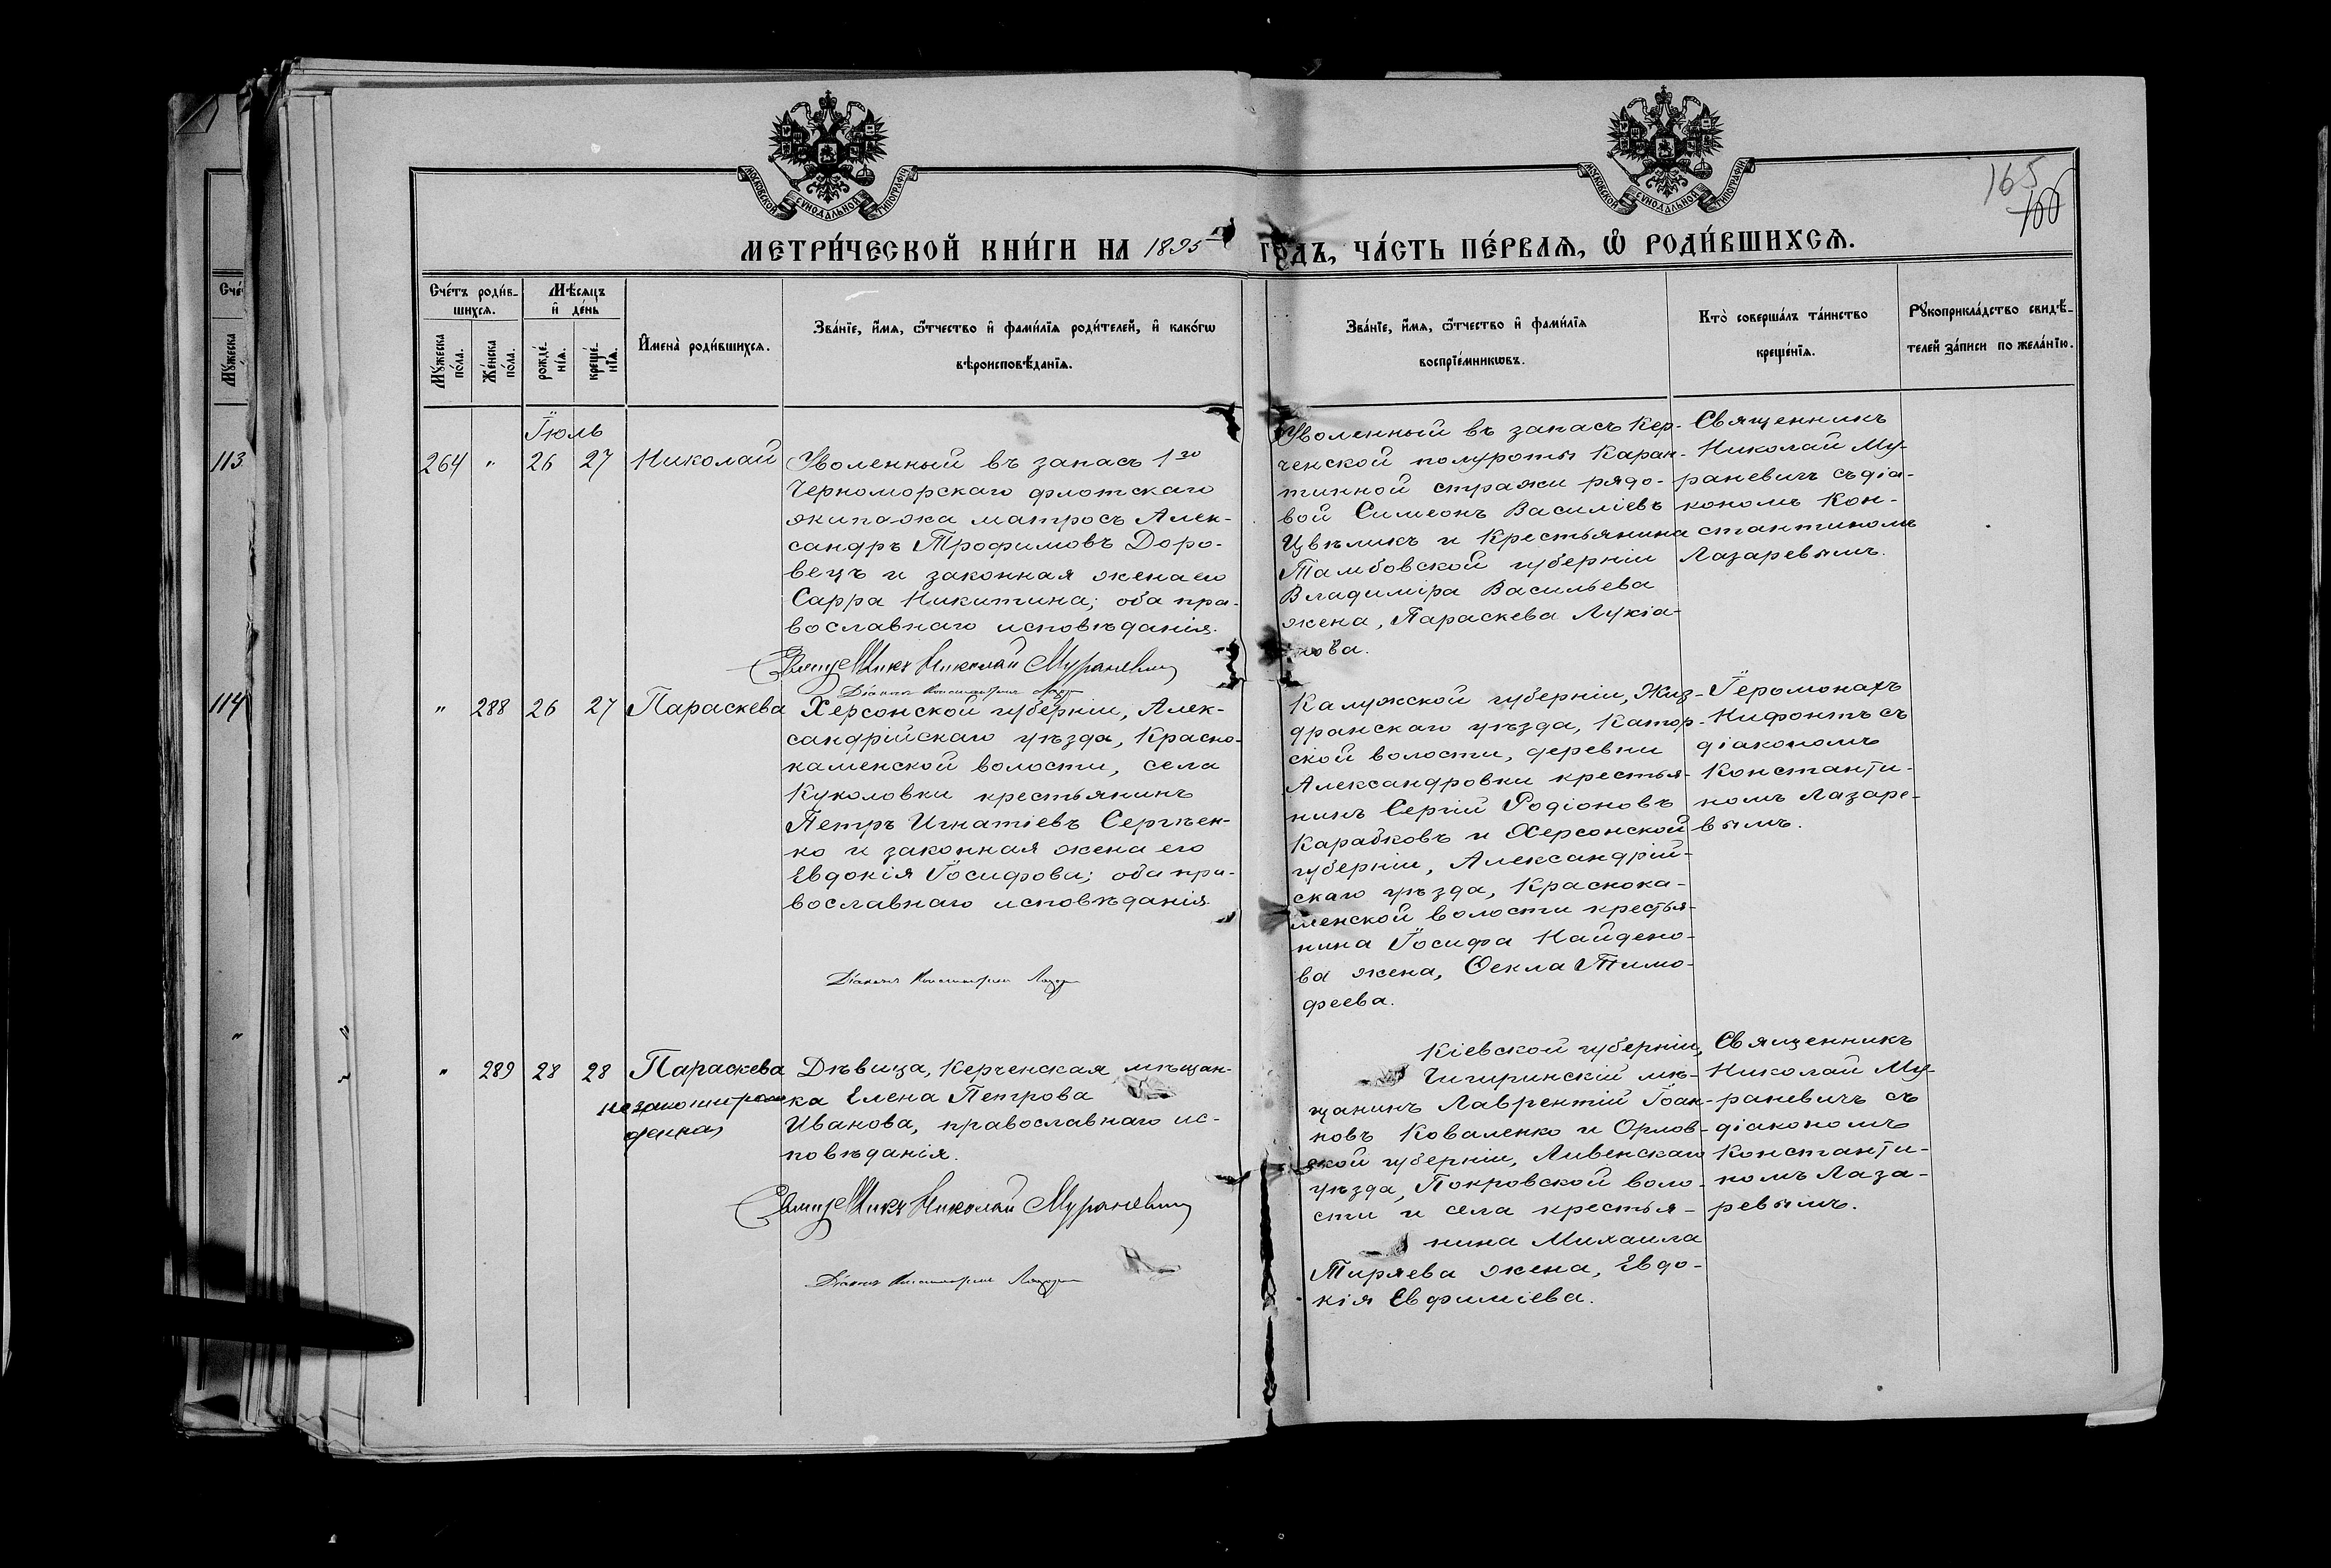 МОСКОВСКОЙ СУНОДАЛЬНОЙ ТИПОГРАФІИ
МОСКОВСКОЙ СУНОДАЛЬНОЙ ТИПОГРАФІИ
165
166
МЕТРИ́ЧЕСКОЙ КНИ́ГИ НА 1895 ГОДЪ, ЧА́СТЬ ПЕ́РВАѦ, Ѡ РОДИ́ВШИХСѦ.
Сче́тъ роди́в-
шихсѧ.
Мꙋ́жеска по́ла.
Же́нска по́ла.
Мѣ́сѧцъ
и҆ де́нь
рожде́-
нїѧ.
креще́-
нїѧ.
И҆мена̀ роди́вшихсѧ.
Зва́нїе, и҆́мѧ, ѻ҆́тчество и҆ фами́лїѧ роди́телей, и҆ како́гѡ
вѣроисповѣ́данїѧ.
Зва́нїе, и҆́мѧ, ѻ҆́тчество и҆ фами́лїѧ
воспрїе́мникѡвъ.
Кто̀ соверша́лъ та́инство
креще́нїѧ.
Рꙋкоприкла́дство свидѣ́-
телей за́писи по жела́нїю.
Сче́
Мꙋ́жеска
113
114
Іюль
264 " 26 27 Николай
Уволенный въ запасъ 1го
Черноморскаго флотскаго
экипажа матросъ Алек-
сандръ Трофимовъ Доро-
вецъ и законная жена его
Сарра Никитина; оба пра-
вославнаго исповѣданія.
Священникъ Николай Мураневичъ
Діаконъ Константинъ
Уволенный въ запасъ Кер-
ченской полуроты Каран-
тинной стражи рядо-
вой Симеонъ Василіевъ
Цвѣликъ и Крестьянина
Тамбовской губерніи
Владиміра Васильева
жена, Параскева Лукіа-
нова.
Священникъ
Николай Му-
раневичъ съ діа-
кономъ Кон-
стантиномъ
Лазаревымъ.
" 288 26 27 Параскева
Херсонской губерніи, Алек-
сандрійскаго уѣзда, Красно-
каменской волости, села
Куколовки крестьянинъ
Петръ Игнатіевъ Сергѣен-
ко и законная жена его
Евдокія Іосифова; оба пра-
вославнаго исповѣданія.
Діаконъ Константинъ
Калужской губерніи, Жиз-
дранскаго уѣзда, Катор-
ской волости, деревни
Александровки крестья-
нинъ Сергій Родіоновъ
Карабковъ и Херсонской
губерніи, Александрій-
скаго уѣзда, Краснока-
менской волости крестья-
нина Іосифа Найдено-
ва жена, Ѳекла Тимо-
феева.
Іеромонахъ
Нифонтъ съ
діакономъ
Константи-
номъ Лазаре-
вымъ.
" 289 28 28 Параскева
незаконнорож
денная
Дѣвица, Керченская мѣщан-
ка Елена Петрова
Иванова, православнаго ис-
повѣданія.
Священникъ Николай Мураневичъ
Діаконъ Константинъ
Кіевской губерніи,
Чигиринскій мѣ-
щанинъ Лаврентій Іоан-
новъ Коваленко и Орлов-
ской губерніи, Ливенскаго
уѣзда, Покровской воло-
сти и села крестья-
нина Михаила
Тиряева жена, Евдо-
кія Евфиміева.
Священникъ
Николай Му-
раневичъ съ
діакономъ
Константи-
номъ Лаза-
ревымъ.